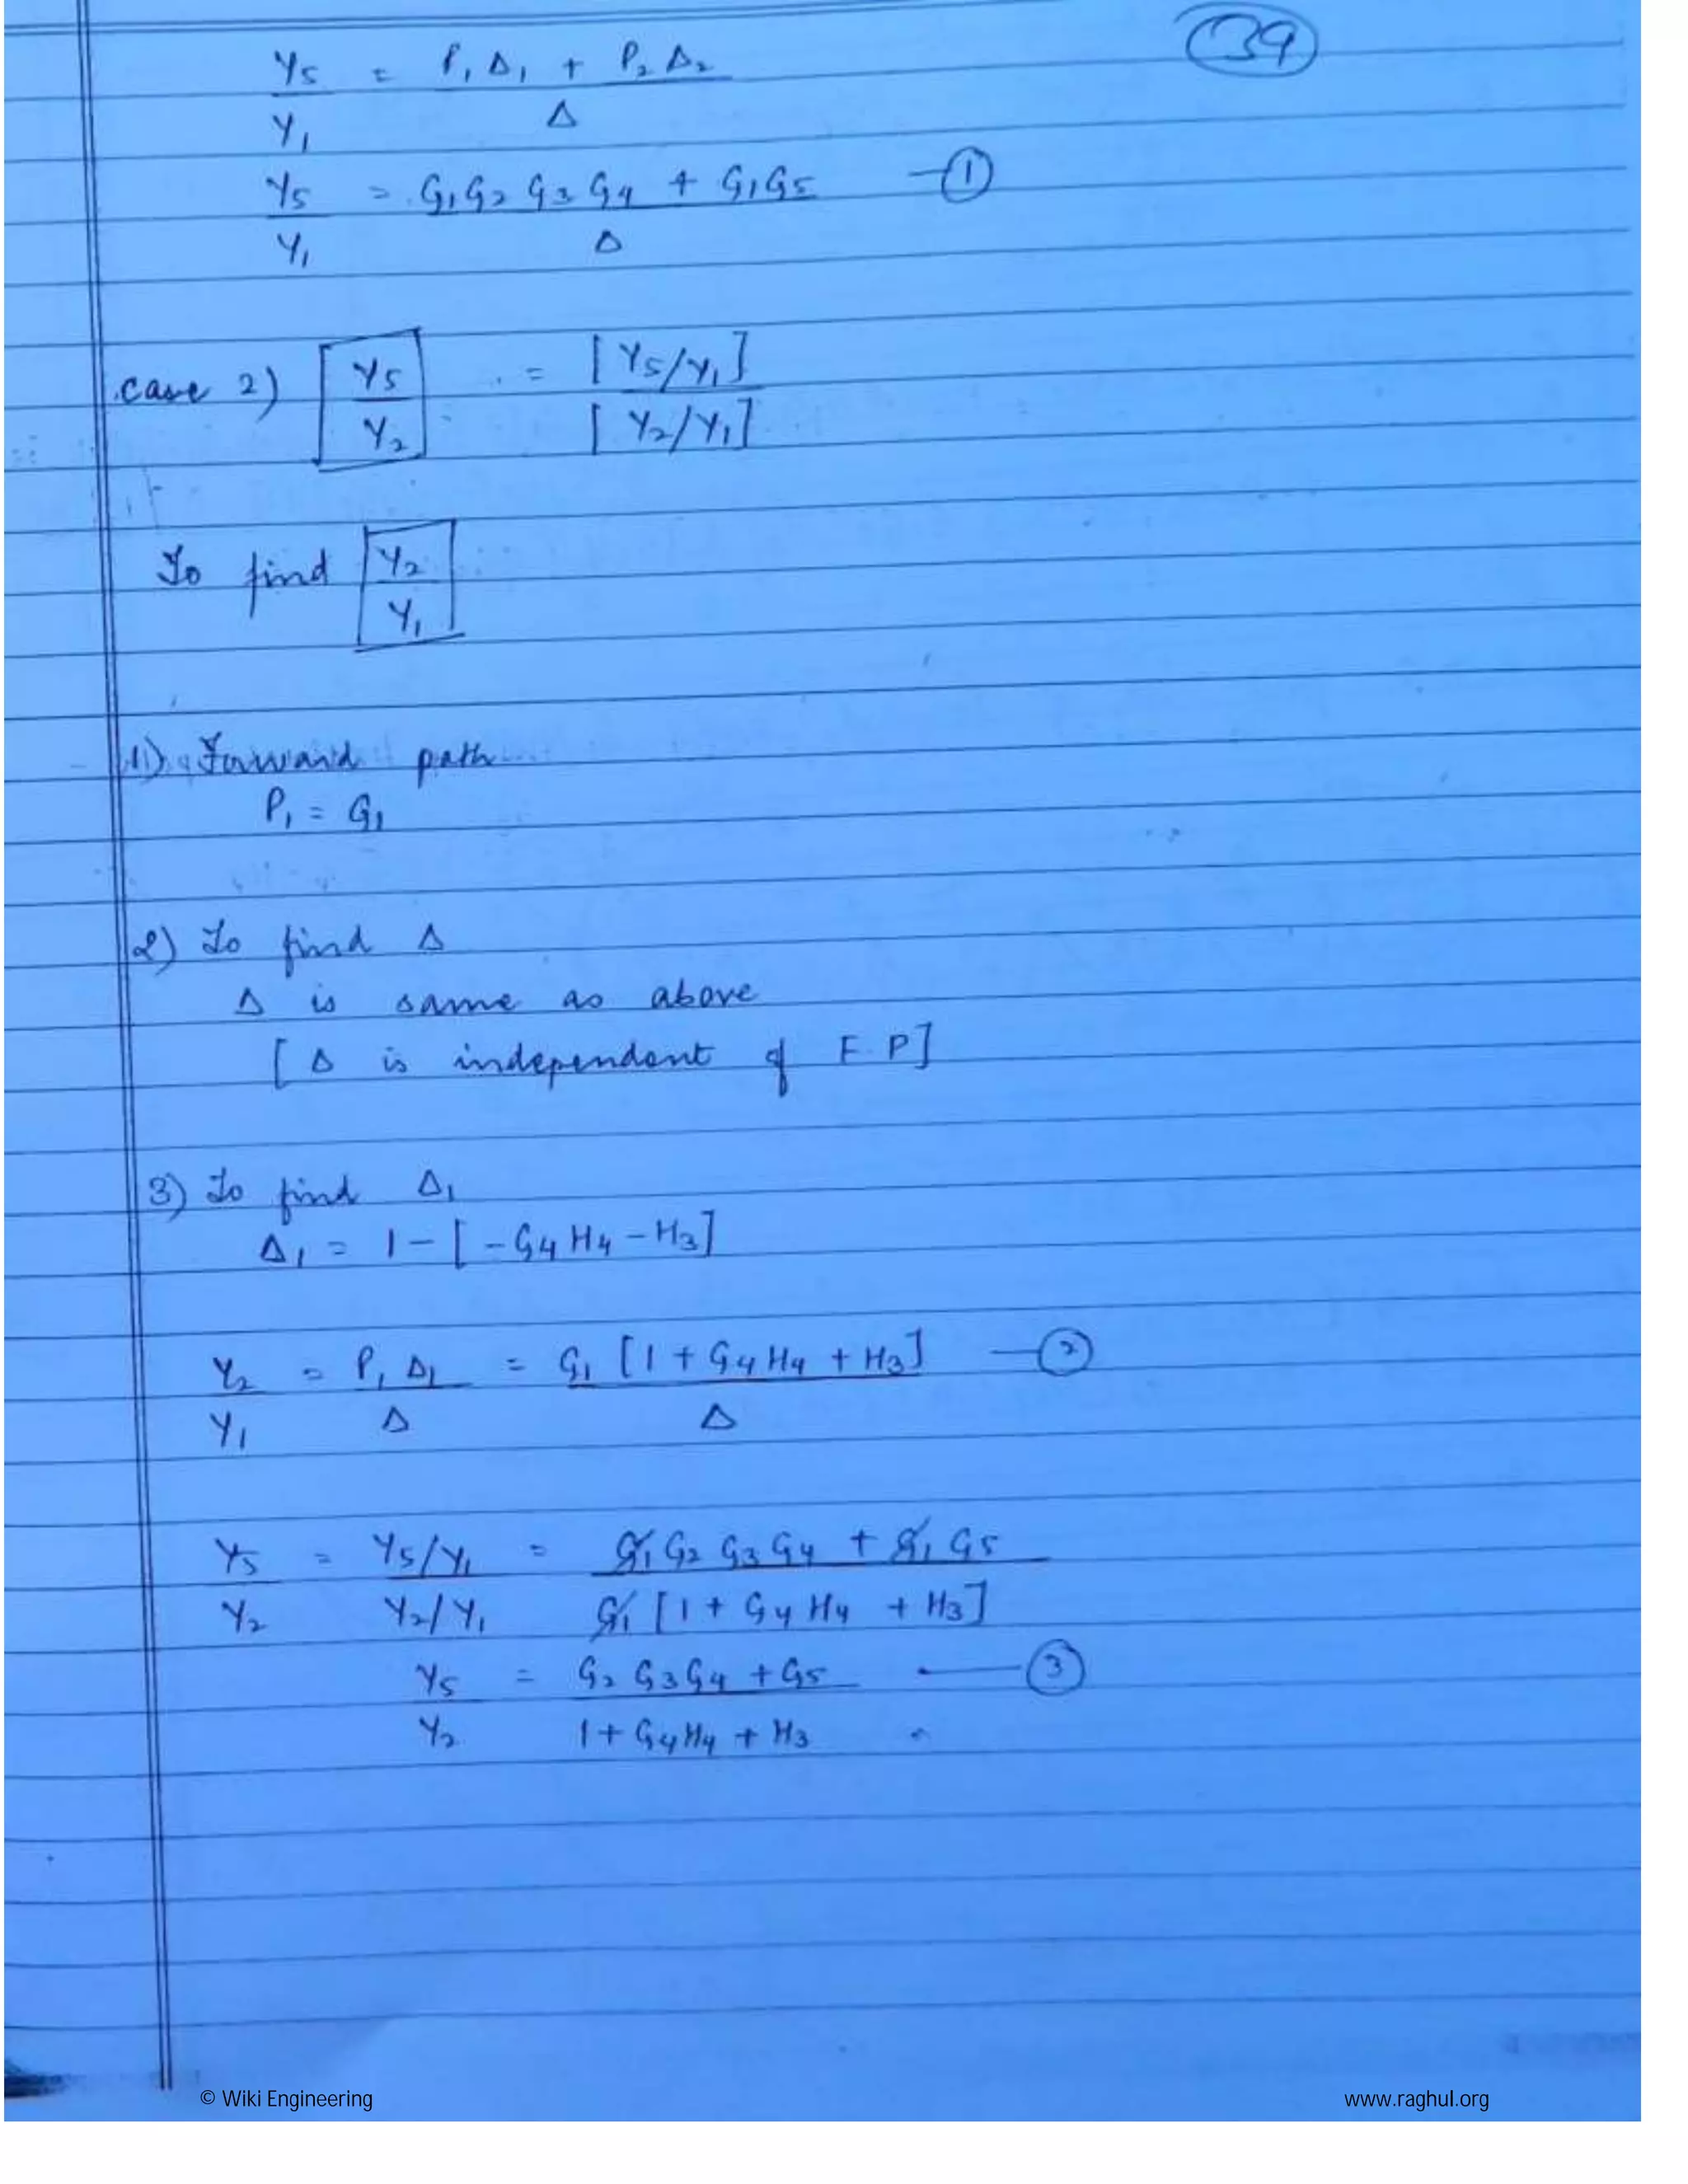 39
Y5/Y1 = P1 Δ1 + P2 Δ2 / Δ
Y5/Y1 = G1G2 G3 G4 + G1G5 / Δ —①
case 2) Y5/Y2 = [Y5/Y1] / [Y2/Y1]
To find Y2/Y1
1) Forward path
P1 = G1
2) To find Δ
Δ is same as above
[Δ is independent of F.P]
3) To find Δ1
Δ1 = 1 - [-G4 H4 - H3]
Y2/Y1 = P1 Δ1 / Δ = G1 [1 + G4 H4 + H3] / Δ —②
Y5/Y2 = Y5/Y1 / Y2/Y1 = G1 G2 G3 G4 + G1 G5 / G1 [1 + G4 H4 + H3]
Y5/Y2 = G2 G3 G4 + G5 / 1 + G4 H4 + H3 —③
© Wiki Engineering www.raghul.org